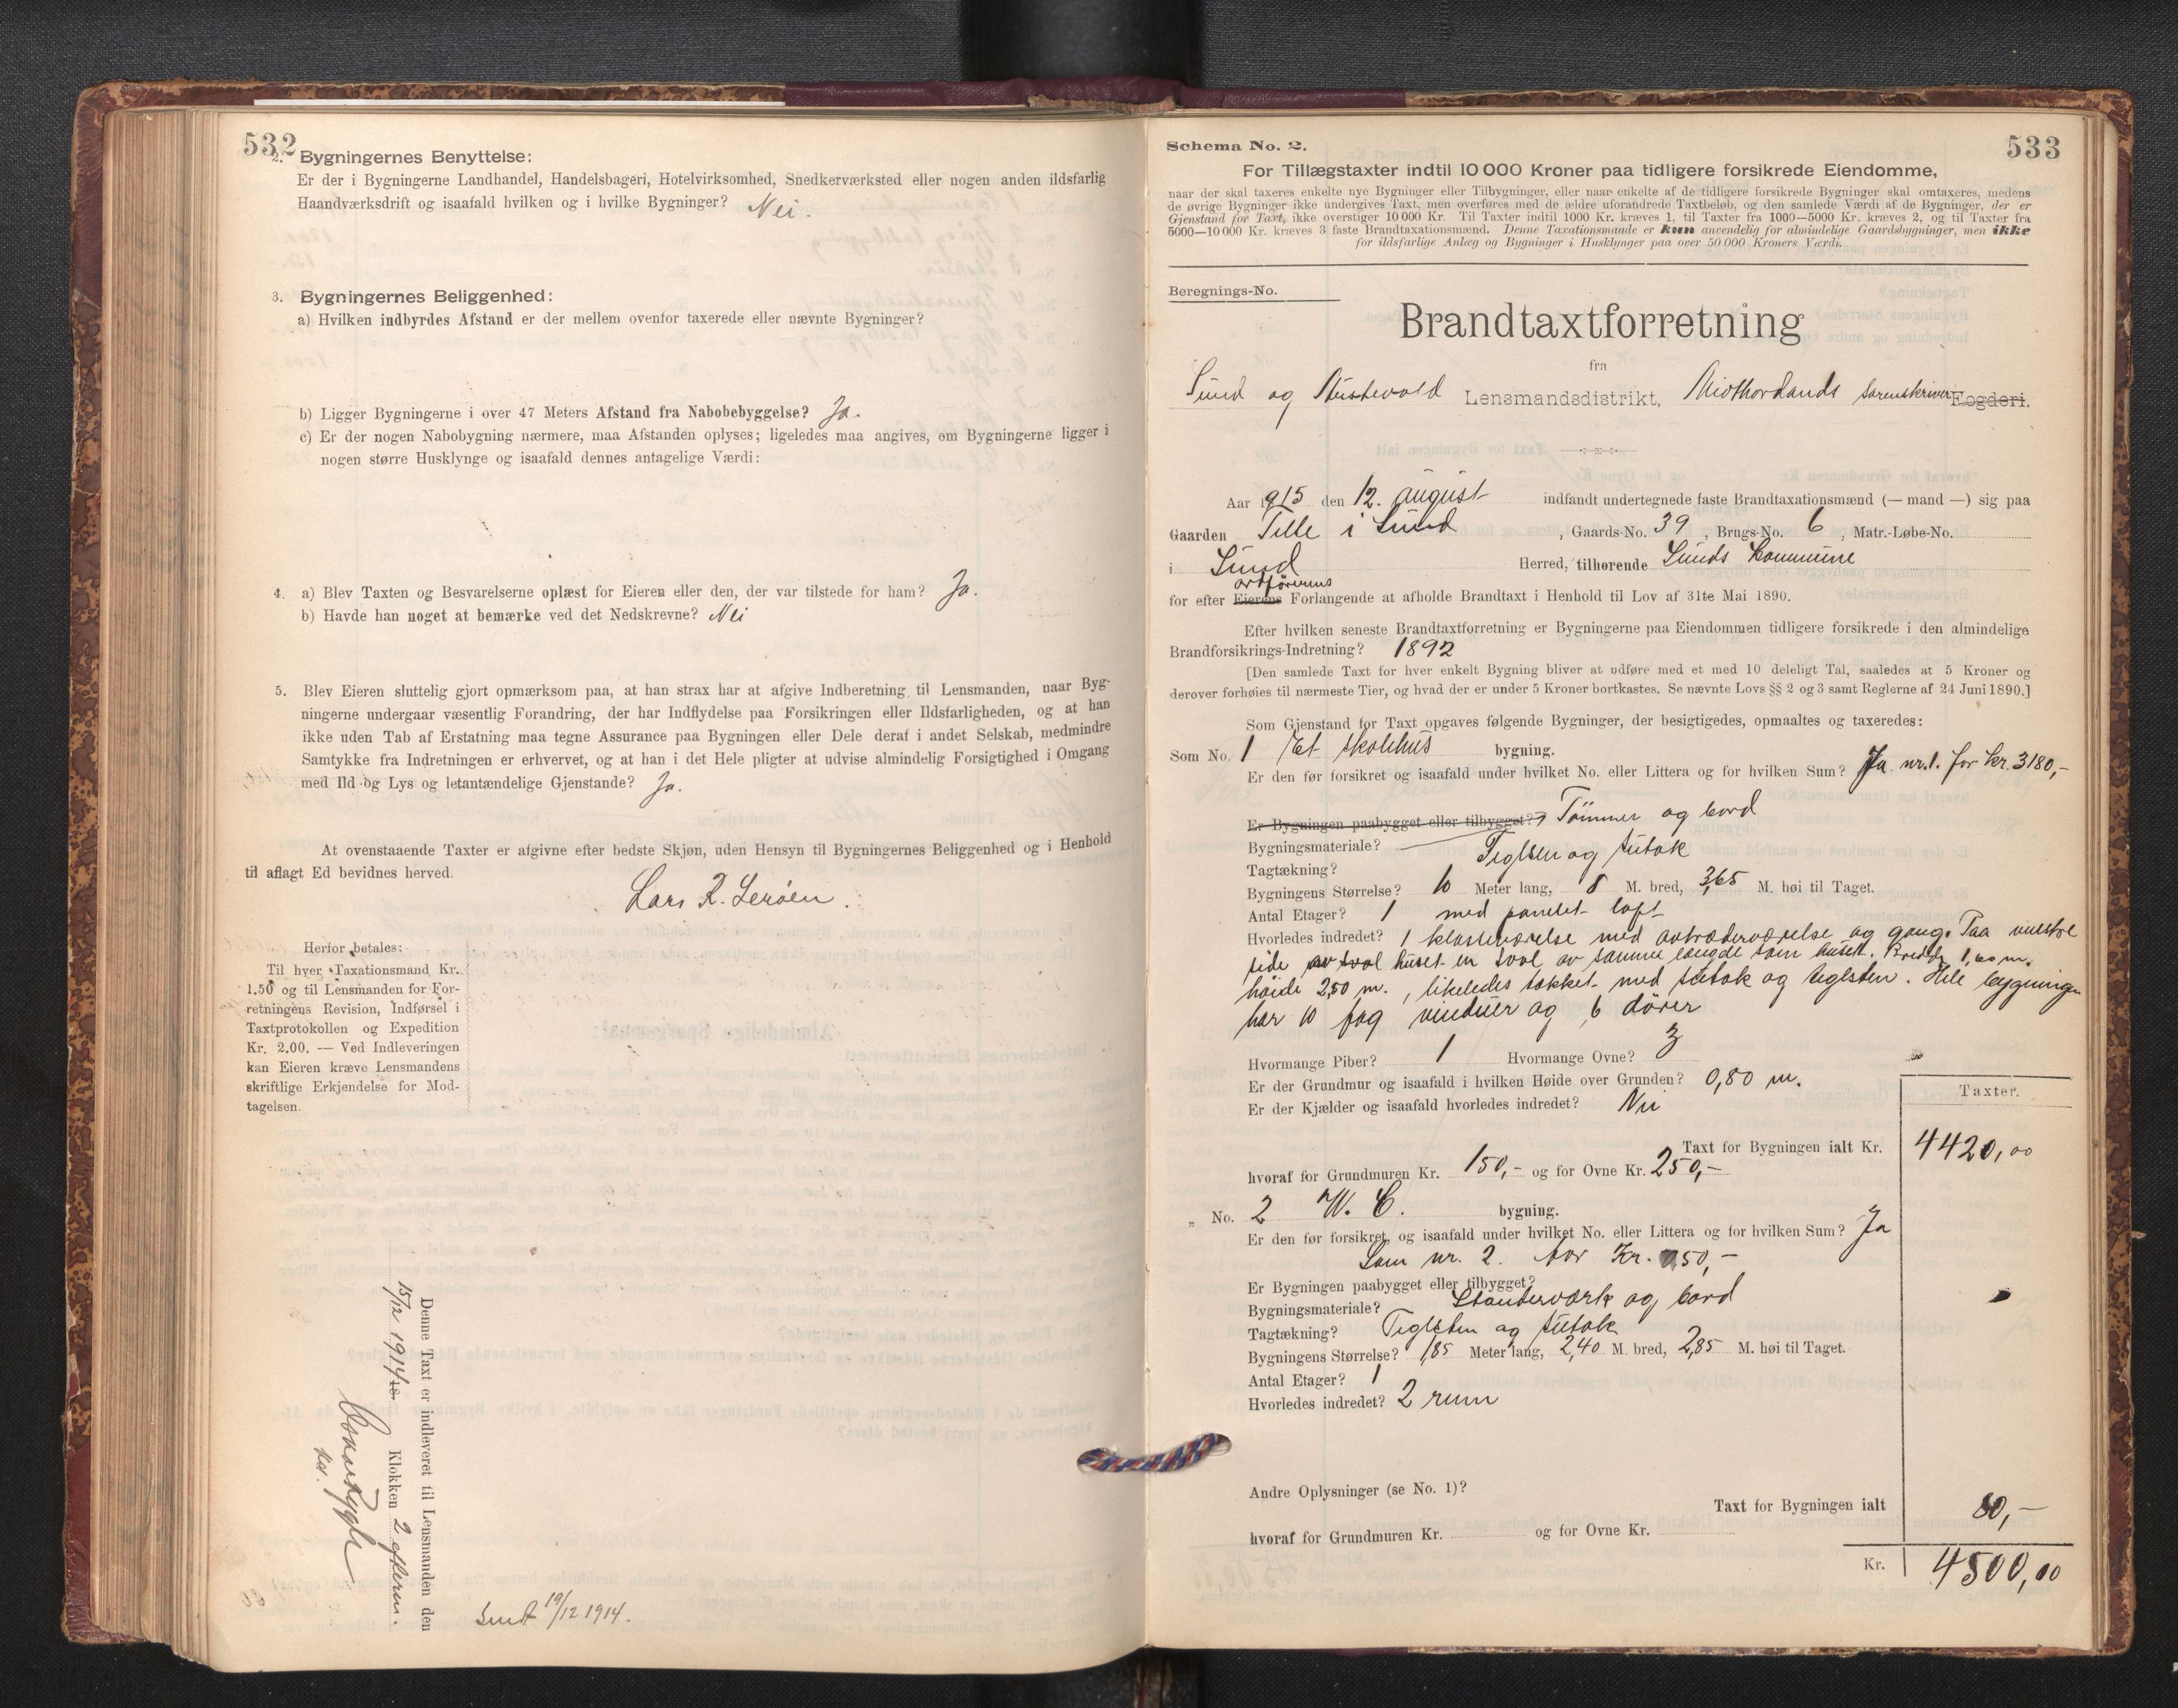 532
2. Bygningernes Benyttelse:
Er der i Bygningerne Landhandel, Handelsbageri, Hotelvirksomhed, Snedkerværksted eller nogen anden ildsfarlig
Haandværksdrift og isaafald hvilken og i hvilke Bygninger? Nei.
3. Bygningernes Beliggenhed:
a) Hvilken indbyrdes Afstand er der mellem ovenfor taxerede eller nævnte Bygninger?
b) Ligger Bygningerne i over 47 Meters Afstand fra Nabobebyggelse? Ja.
c) Er der nogen Nabobygning nærmere, maa Afstanden oplyses; ligeledes maa angives, om Bygningerne ligger i
nogen større Husklynge og isaafald dennes antagelige Værdi:
4. a) Blev Taxten og Besvarelserne oplæst for Eieren eller den, der var tilstede for ham? Ja.
b) Havde han noget at bemærke ved det Nedskrevne? Nei
5. Blev Eieren sluttelig gjort opmærksom paa, at han strax har at afgive Indberetning til Lensmanden, naar Byg-
ningerne undergaar væsentlig Forandring, der har Indflydelse paa Forsikringen eller Ildsfarligheden, og at han
ikke uden Tab af Erstatning maa tegne Assurance paa Bygningen eller Dele deraf i andet Selskab, medmindre
Samtykke fra Indretningen er erhvervet, og at han i det Hele pligter at udvise almindelig Forsigtighed i Omgang
med Ild og Lys og letantændelige Gjenstande? Ja.
At ovenstaaende Taxter er afgivne efter bedste Skjøn, uden Hensyn til Bygningernes Beliggenhed og i Henhold
til aflagt Ed bevidnes herved.
Lars R. Lerøen.
Herfor betales:
Til hver Taxationsmand Kr.
1.50 og til Lensmanden for For-
retningens Revision, Indførsel i
Taxtprotokollen og Expedition
Kr. 2.00. — Ved Indleveringen
kan Eieren kræve Lensmandens
skriftlige Erkjendelse for Mod-
tagelsen.
Denne Taxt er indleveret til Lensmanden den
15/12 1914 Klokken 2 efterm.
Sendt 19/12 1914.
Schema No. 2.
533
For Tillægstaxter indtil 10 000 Kroner paa tidligere forsikrede Eiendomme,
naar der skal taxeres enkelte nye Bygninger eller Tilbygninger, eller naar enkelte af de tidligere forsikrede Bygninger skal omtaxeres, medens
de øvrige Bygninger ikke undergives Taxt, men overføres med de ældre uforandrede Taxtbeløb, og den samlede Værdi af de Bygninger, der er
Gjenstand for Taxt, ikke overstiger 10 000 Kr. Til Taxter indtil 1000 Kr. kræves 1, til Taxter fra 1000—5000 Kr. kræves 2, og til Taxter fra
5000—10 000 Kr. kræves 3 faste Brandtaxationsmænd. Denne Taxationsmaade er kun anvendelig for almindelige Gaardsbygninger, men ikke
for ildsfarlige Anlæg og Bygninger i Husklynger paa over 50 000 Kroners Værdi.
Beregnings-No.
Brandtaxtforretning
fra
Sund og Austevold Lensmandsdistrikt, Midthordlands sorenskriver Fogderi.
Aar 1915 den 12. august indfandt undertegnede faste Brandtaxationsmænd (— mand —) sig paa
Gaarden Telle i Sund, Gaards-No. 39, Brugs-No. 6, Matr.-Løbe-No.
i Sund Herred, tilhørende Sunds kommune
ordførerens
for efter Eierens Forlangende at afholde Brandtaxt i Henhold til Lov af 31te Mai 1890.
Efter hvilken seneste Brandtaxtforretning er Bygningerne paa Eiendommen tidligere forsikrede i den almindelige
Brandforsikrings-Indretning? 1892
[Den samlede Taxt for hver enkelt Bygning bliver at udføre med et med 10 deleligt Tal, saaledes at 5 Kroner og
derover forhøies til nærmeste Tier, og hvad der er under 5 Kroner bortkastes. Se nævnte Lovs §§ 2 og 3 samt Reglerne af 24 Juni 1890.]
Som Gjenstand for Taxt opgaves følgende Bygninger, der besigtigedes, opmaaltes og taxeredes:
Som No. 1 Et skolehus bygning.
Er den før forsikret og isaafald under hvilket No. eller Littera og for hvilken Sum? Ja nr. 1. for kr. 3180,-
Er Bygningen paabygget eller tilbygget?
Bygningsmateriale? Tømmer og bord
Tagtækning? Teglsten og sutak
Bygningens Størrelse? 10 Meter lang, 8 M. bred, 3,65 M. høi til Taget.
Antal Etager? 1 med panelet loft
Hvorledes indredet? 1 klasseværelse med avtrædeværelse og gang. Paa vestre
side av huset en sval av samme længde som huset. Bredde 1,60 m.
høide 2,50 m., likeledes tækket med sutak og teglsten. Hele bygningen
har 10 fag vinduer og 6 dører
Hvormange Piber? 1 Hvormange Ovne? 3
Er der Grundmur og isaafald i hvilken Høide over Grunden? 0,80 m.
Er der Kjælder og isaafald hvorledes indredet? Nei
Taxter.
Taxt for Bygningen ialt Kr. 4420,00
hvoraf for Grundmuren Kr. 150,- og for Ovne Kr. 250,-
" No. 2 W. C. bygning.
Er den før forsikret, og isaafald under hvilket No. eller Littera og for hvilken Sum? Ja
Som nr. 2. for Kr. 50,-
Er Bygningen paabygget eller tilbygget?
Bygningsmateriale? Standerværk og bord
Tagtækning? Teglsten og sutak
Bygningens Størrelse? 1,85 Meter lang, 2,40 M. bred, 2,85 M. høi til Taget.
Antal Etager? 1
Hvorledes indredet? 2 rum
Andre Oplysninger (se No. 1)?
Taxt for Bygningen ialt 80,-
hvoraf for Grundmuren Kr. og for Ovne Kr.
Kr. 4500,00